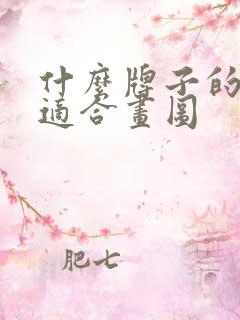 什麼牌子的
適合畫圖
肥七